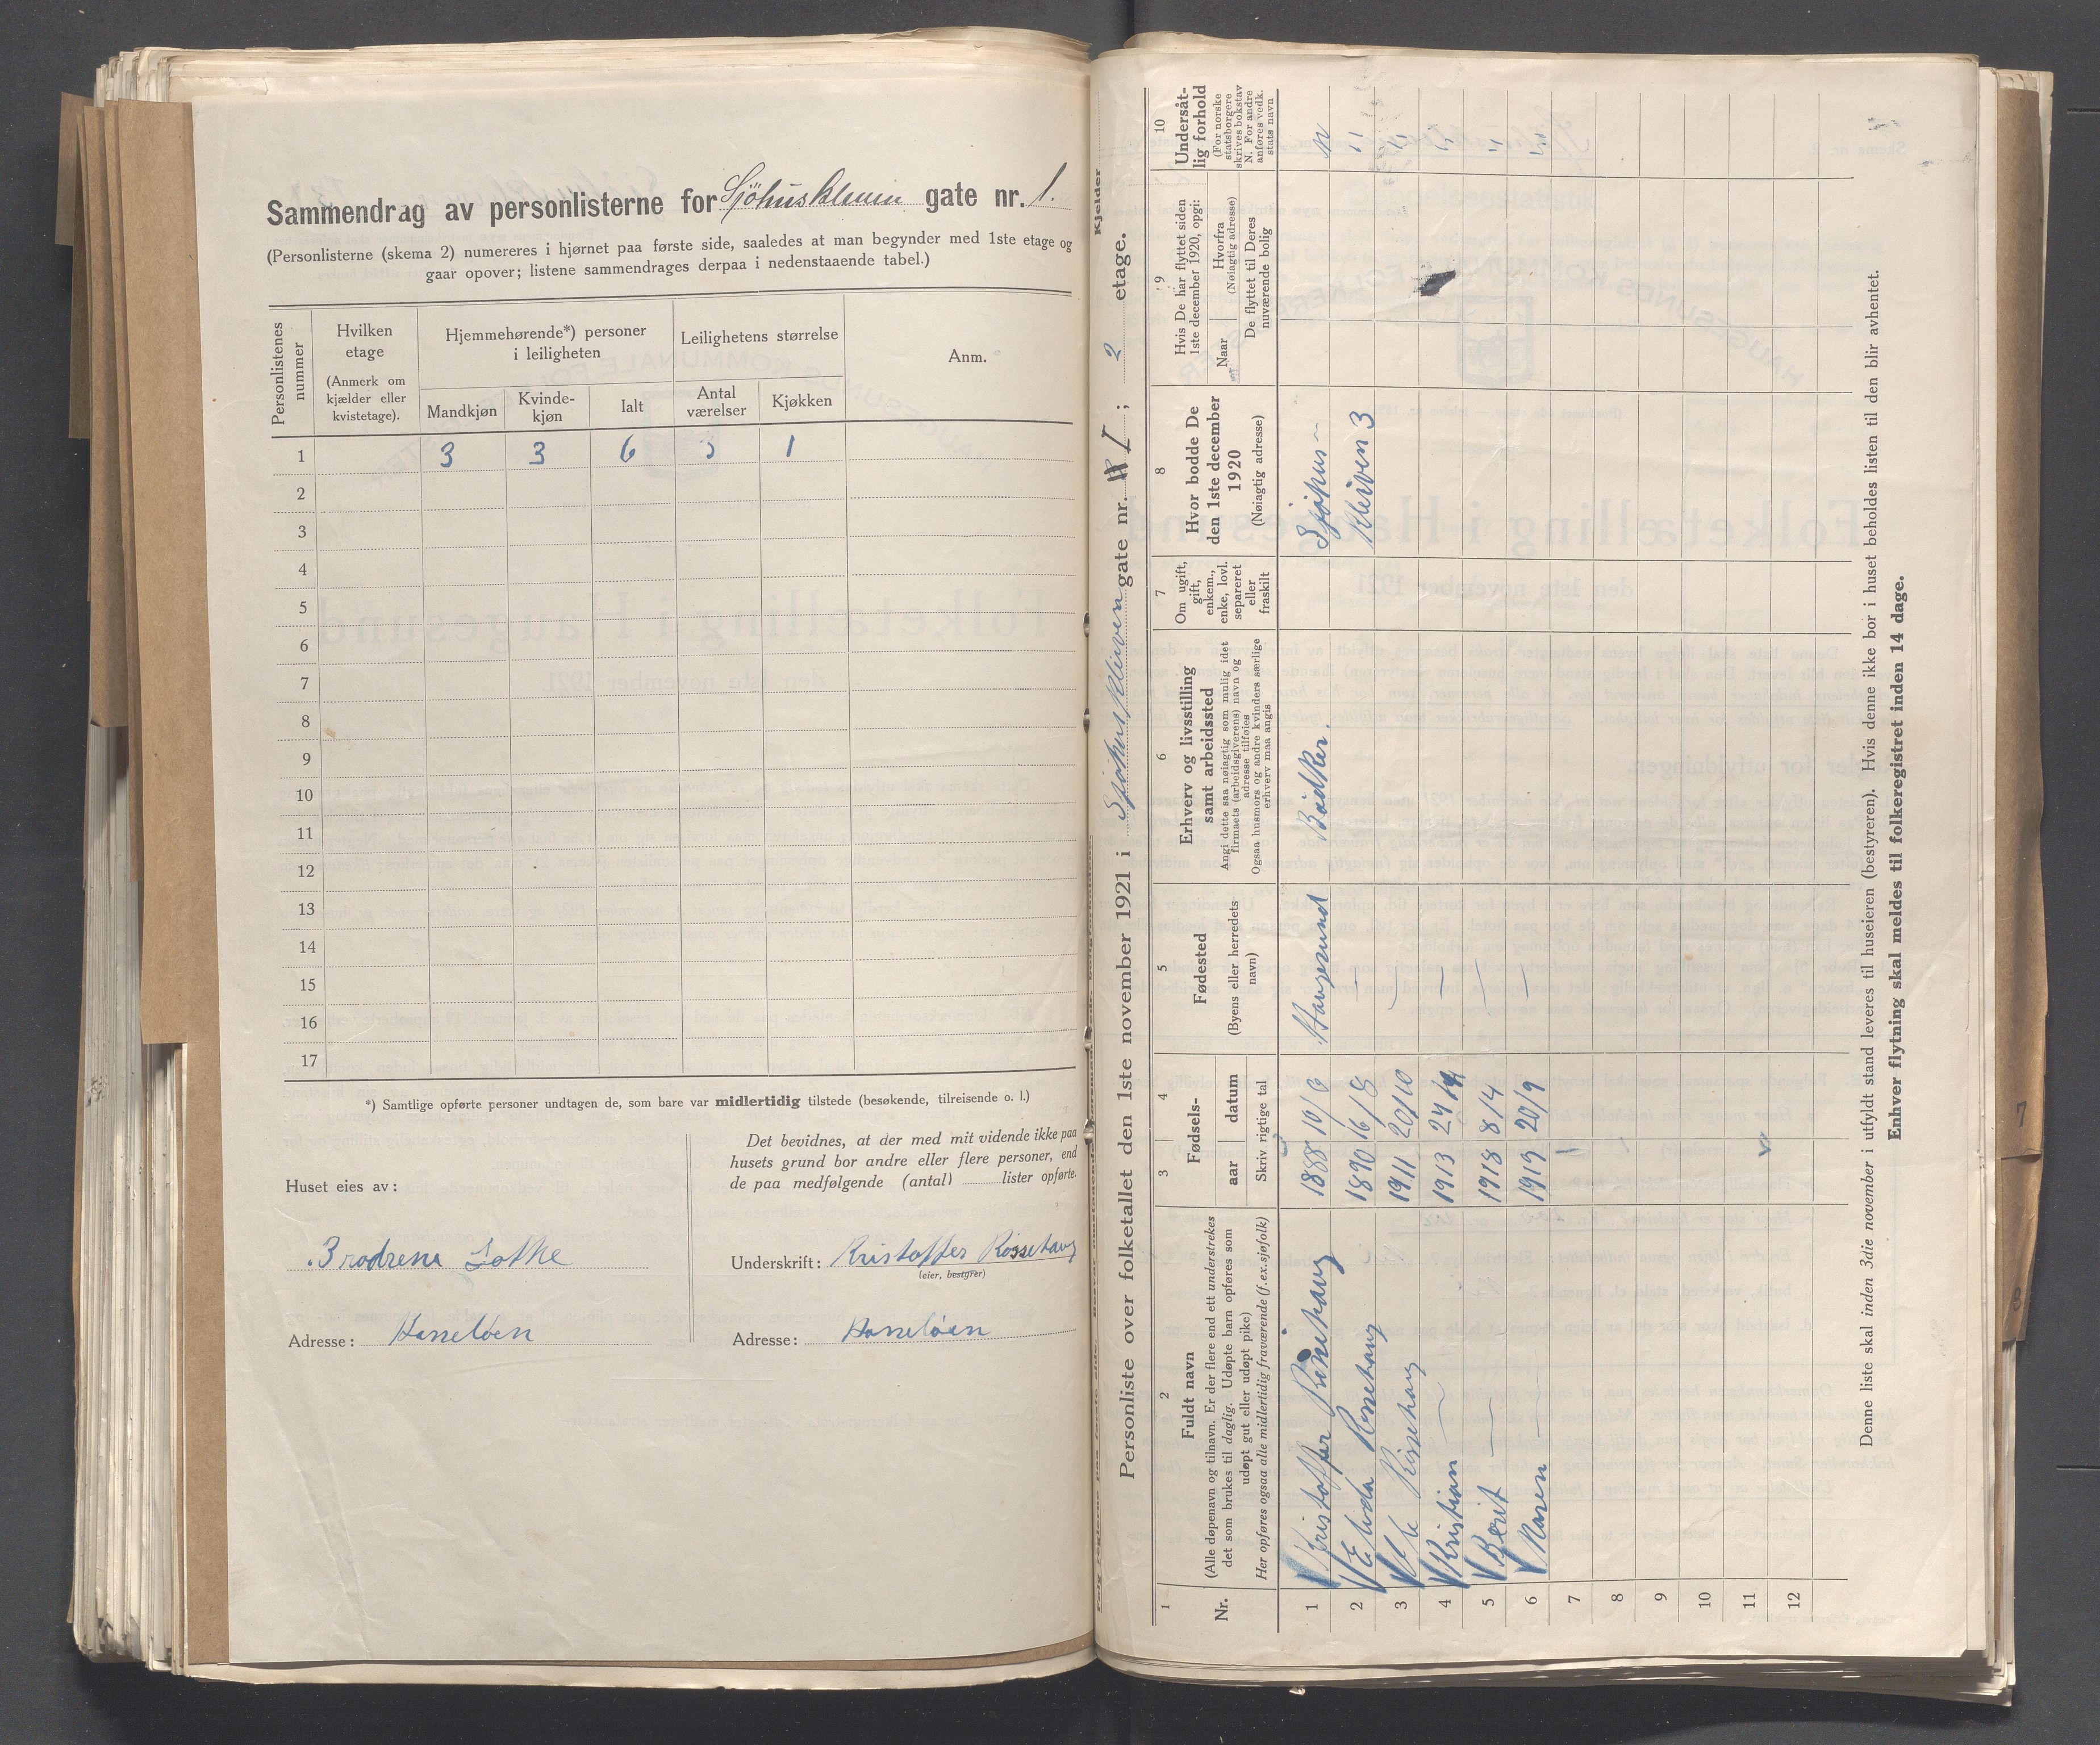 Sammendrag av personlisterne for Sjöhuskleven gate nr. 1.
(Personlisterne (skema 2) numereres i hjørnet paa første side, saaledes at man begynder med 1ste etage og
gaar opover; listene sammendrages derpaa i nedenstaaende tabel.)
Personlistenes nummer
Hvilken etage
(Anmerk om kjælder eller kvistetage).
Hjemmehørende*) personer i leiligheten
Mandkjøn
Kvinde-kjøn
Ialt
Leilighetens størrelse
Antal værelser
Kjøkken
Anm.
1 3 3 6 1
2
3
4
5
6
7
8
9
10
11
12
13
14
15
16
17
*) Samtlige opførte personer undtagen de, som bare var midlertidig tilstede (besøkende, tilreisende o. l.)
Huset eies av:
Brødrene Lothe
Adresse: Hasseløen
Det bevidnes, at der med mit vidende ikke paa
husets grund bor andre eller flere personer, end
de paa medfølgende (antal) lister opførte.
Underskrift: Kristoffer Rossehaug
(eier, bestyrer)
Adresse: Hasseløen
Kjelder
Personliste over folketallet den 1ste november 1921 i Sjøhuskleiven gate nr. 1; 2 etage.
1
Nr.
2
Fuldt navn
(Alle døpenavn og tilnavn. Er der flere end ett understrekes
det som brukes til daglig. Udøpte barn opføres som
udøpt gut eller udøpt pike)
Her opføres ogsaa alle midlertidig fraværende (f.ex. sjøfolk)
3 4
Fødsels-
aar datum
Skriv rigtige tal
5
Fødested
(Byens eller herredets navn)
6
Erhverv og livsstilling
samt arbeidssted
Angi dette saa nøiagtig som mulig idet
firmaets (arbeidsgiverens) navn og
adresse tilføies
Ogsaa husmors og andre kvinders særlige
erhverv maa angis
7
Om ugift,
gift,
enkem.,
enke, lovl.
separeret
eller
fraskilt
8
Hvor bodde De
den 1ste december
1920
(Nøiagtig adresse)
9
Hvis De har flyttet siden
1ste december 1920, opgi:
Naar
Hvorfra
(Nøiagtig adresse)
De flyttet til Deres
nuværende bolig
10
Undersåt-
lig forhold
(For norske
statsborgere
skrives bokstav
N. For andre
anføres vedk.
stats navn
1 Kristoffer Rossehaug 1888 10/6 Haugesund Bødker. Sjøhus- N
2 Elida Rossehaug 1890 16/8 — Kleiven 3 "
3 Rossehaug 1911 20/10 — "
4 Kristian — 1913 — "
5 Berit — 1918 8/4 — "
6 Karen — 1919 20/9 — "
7
8
9
10
11
12
Denne liste skal inden 3die november i utfyldt stand leveres til huseieren (bestyreren). Hvis denne ikke bor i huset beholdes listen til den blir avhentet.
Enhver flytning skal meldes til folkeregistret inden 14 dage.